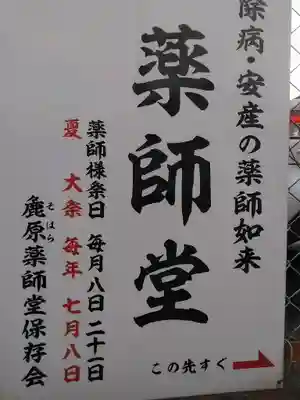 除病・安産の薬師如来
薬師堂
この先すぐ
薬師様祭日 毎月八日 二十一日
夏大祭 毎年七月八日
麁原薬師堂保存会
そはら